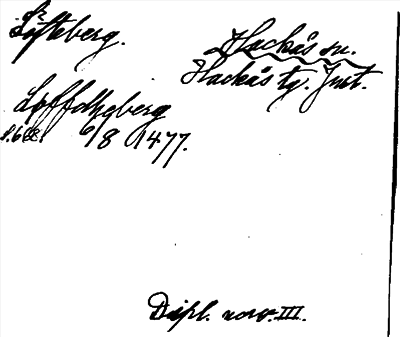 Löfteberg.
Hackås sn.
Hackås tg. Jmt.
Loffdhgberg
s. 68. 6/8 1477.
Dipl. norv. III.